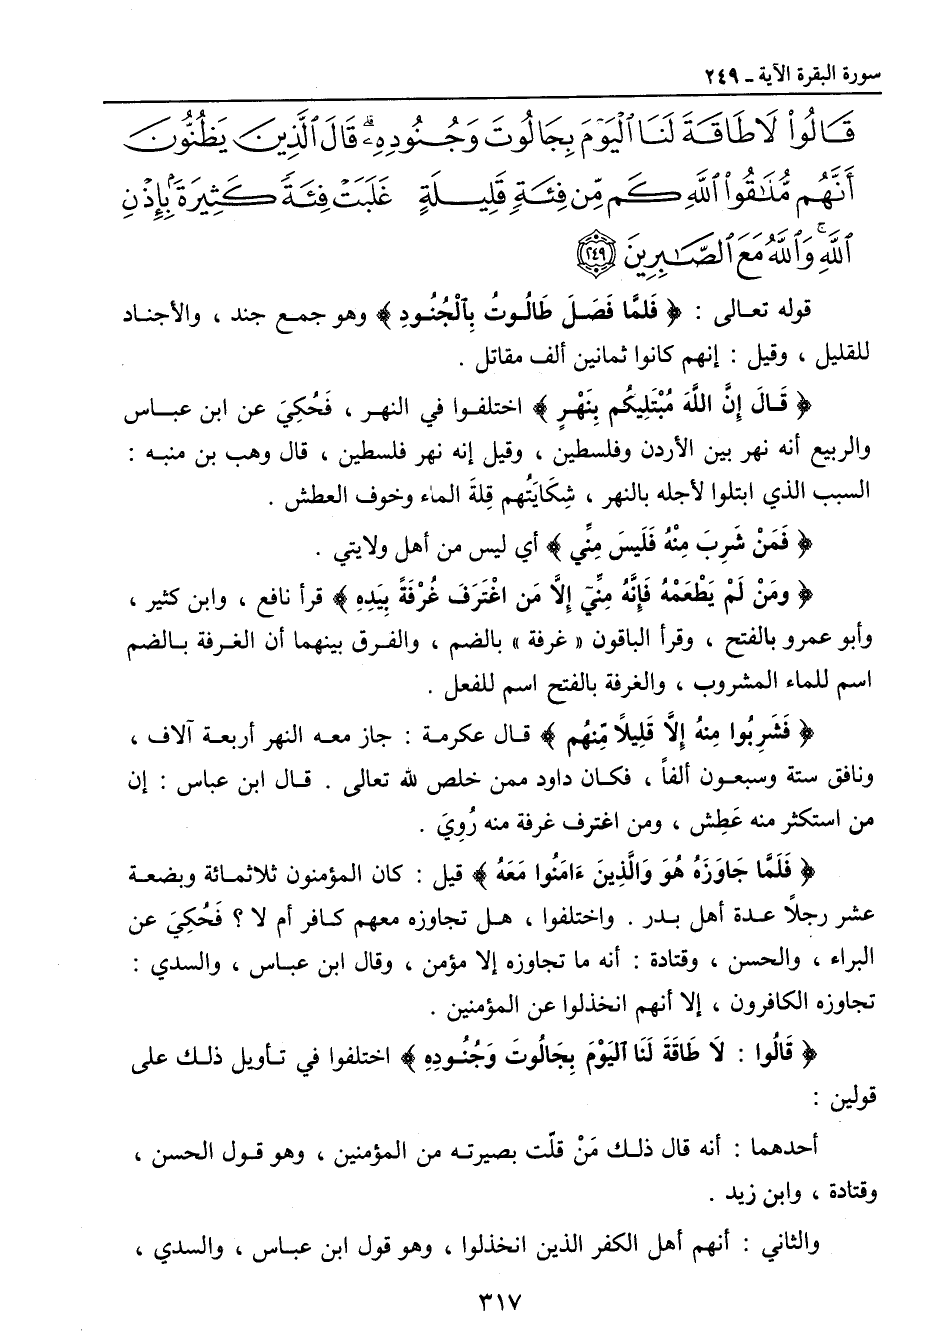 سورة البقرة الآية ـ ٢٤٩
قَالُواْ لَا طَاقَةَ لَنَا ٱلْيَوْمَ بِجَالُوتَ وَجُنُودِهِۦۚ قَالَ ٱلَّذِينَ يَظُنُّونَ
أَنَّهُم مُّلَٰقُواْ ٱللَّهِ كَم مِّن فِئَةٍ قَلِيلَةٍ غَلَبَتْ فِئَةً كَثِيرَةَۢ بِإِذْنِ
ٱللَّهِۗ وَٱللَّهُ مَعَ ٱلصَّٰبِرِينَ ٢٤٩
قوله تعالى : ﴿ فَلَمَّا فَصَلَ طَالُوتُ بِٱلْجُنُودِ ﴾ وهو جمع جند ، والأجناد
للقليل ، وقيل : إنهم كانوا ثمانين ألف مقاتل .
﴿ قَالَ إِنَّ اللَّهَ مُبْتَلِيكُم بِنَهْرٍ ﴾ اختلفوا في النهر ، فَحُكِيَ عن ابن عباس
والربيع أنه نهر بين الأردن وفلسطين ، وقيل إنه نهر فلسطين ، قال وهب بن منبه :
السبب الذي ابتلوا لأجله بالنهر ، شِكَايَتُهم قِلةَ الماء وخوف العطش .
﴿ فَمَنْ شَرِبَ مِنْهُ فَلَيسَ مِنِّي ﴾ أي ليس من أهل ولايتي .
﴿ ومَنْ لَمْ يَطْعَمْهُ فَإِنَّهُ مِنِّيَ إِلاَّ مَن اغْتَرَفَ غُرْفَةً بِيَدِهِ ﴾ قرأ نافع ، وابن كثير ،
وأبو عمرو بالفتح ، وقرأ الباقون « غرفة » بالضم ، والفرق بينهما أن الغرفة بالضم
اسم للماء المشروب ، والغرفة بالفتح اسم للفعل .
﴿ فَشَرِبُوا مِنهُ إِلاَّ قَلِيلاً مِّنهُم ﴾ قال عكرمة : جاز معه النهر أربعة آلاف ،
ونافق ستة وسبعون ألفاً ، فكان داود ممن خلص لله تعالى . قال ابن عباس : إن
من استكثر منه عَطِش ، ومن اغترف غرفة منه رُوِيَ .
﴿ فَلَمَّا جَاوَزَهُ هُوَ وَالَّذِينَ ءَامَنُوا مَعَهُ ﴾ قيل : كان المؤمنون ثلاثمائة وبضعة
عشر رجلاً عدة أهل بدر . واختلفوا ، هل تجاوزه معهم كافر أم لا ؟ فَحُكِيَ عن
البراء ، والحسن ، وقتادة : أنه ما تجاوزه إلا مؤمن ، وقال ابن عباس ، والسدي :
تجاوزه الكافرون ، إلا أنهم انخذلوا عن المؤمنين .
﴿ قَالُوا : لاَ طَاقَةَ لَنَا ٱليَوْمَ بِجَالُوتَ وَجُنُودِهِ ﴾ اختلفوا في تأويل ذلك على
قولين :
أحدهما : أنه قال ذلك مَنْ قلّت بصيرته من المؤمنين ، وهو قول الحسن ،
وقتادة ، وابن زيد .
والثاني : أنهم أهل الكفر الذين انخذلوا ، وهو قول ابن عباس ، والسدي ،
٣١٧